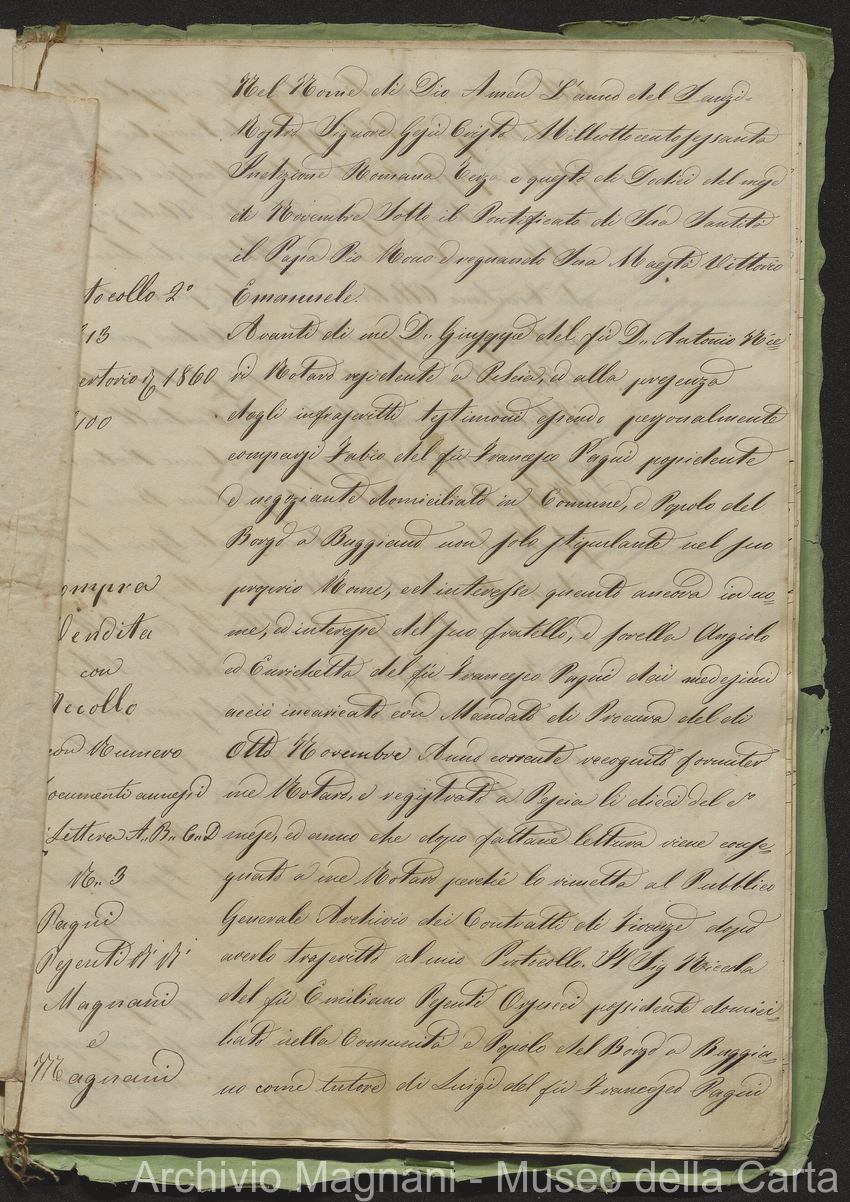 Nel Nome di Dio Amen L'anno del
Nostro Signore Gesù Cristo Milleottocentosessanta
Indizione Romana Terza e questo dì Dodici del mese
di Novembre Sotto il Pontificato di Sua Santità
il Papa Pio Nono e regnando Sua Maestà Vittorio
Emanuele.
tocollo 2°
Avanti di me D.. Giuseppe del fù D.. Antonio Nic=
13
ri Notaro residente a Pescia, ed alla presenza
ertorio 1860
degli infrascritti testimoni essendo personalmente
100
comparsi Fabio del fù Francesco Pagni possidente
e negoziante domiciliato in Comune, e Popolo del
Borgo a Buggiano non solo stipulante nel suo
ompra
proprio Nome, ed interesse quanto ancora in no=
Vendita
me, ed interesse del suo fratello, e sorella Angiolo
con
ed Enrichetta del fù Francesco Pagni dai medesimi
Accollo
acciò incaricato con Mandato di Procura del dì
con Numero
Otto Novembre Anno corrente recognito
ocumenti annessi
me Notaro, e registrato a Pescia li dieci del s°
Lettera A.. B.. C.. D
mese, ed anno che dopo fattane lettura viene conse=
N.. 3
gnato a me Notaro perché lo rimetta al Pubblico
Pagni
Generale Archivio dei Contratti di Firenze dopo
Pesenti
averlo trascritto al mio Protocollo. Il Sig Niccola
Magnani
del fù Emiliano Pesenti possidente domici=
e
liato nella Comunità e Popolo del Borgo a Buggia=
Magnani
no come tutore di Luigi del fù Francesco Pagni
Archivio Magnani - Museo della Carta